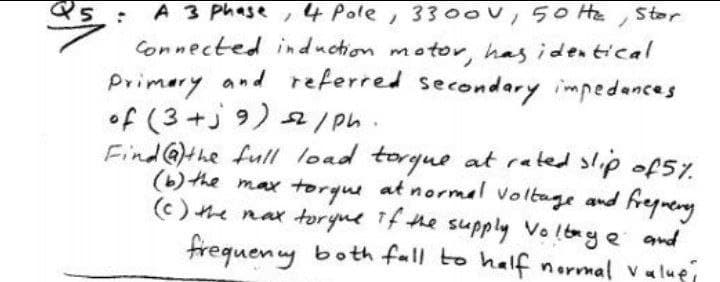 Q5 : A 3 phase , 4 Pole , 3300V , 50 Hz , Star
Connected induction motor, has identical
primary and referred secondary impedances
of (3+j 9) Ω /ph .
Find (a) the full load torque at rated slip of 5%.
(b) the max torque at normal voltage and freqneny
(c) the max torque if the supply Voltage and
frequeny both fall to half normal value;